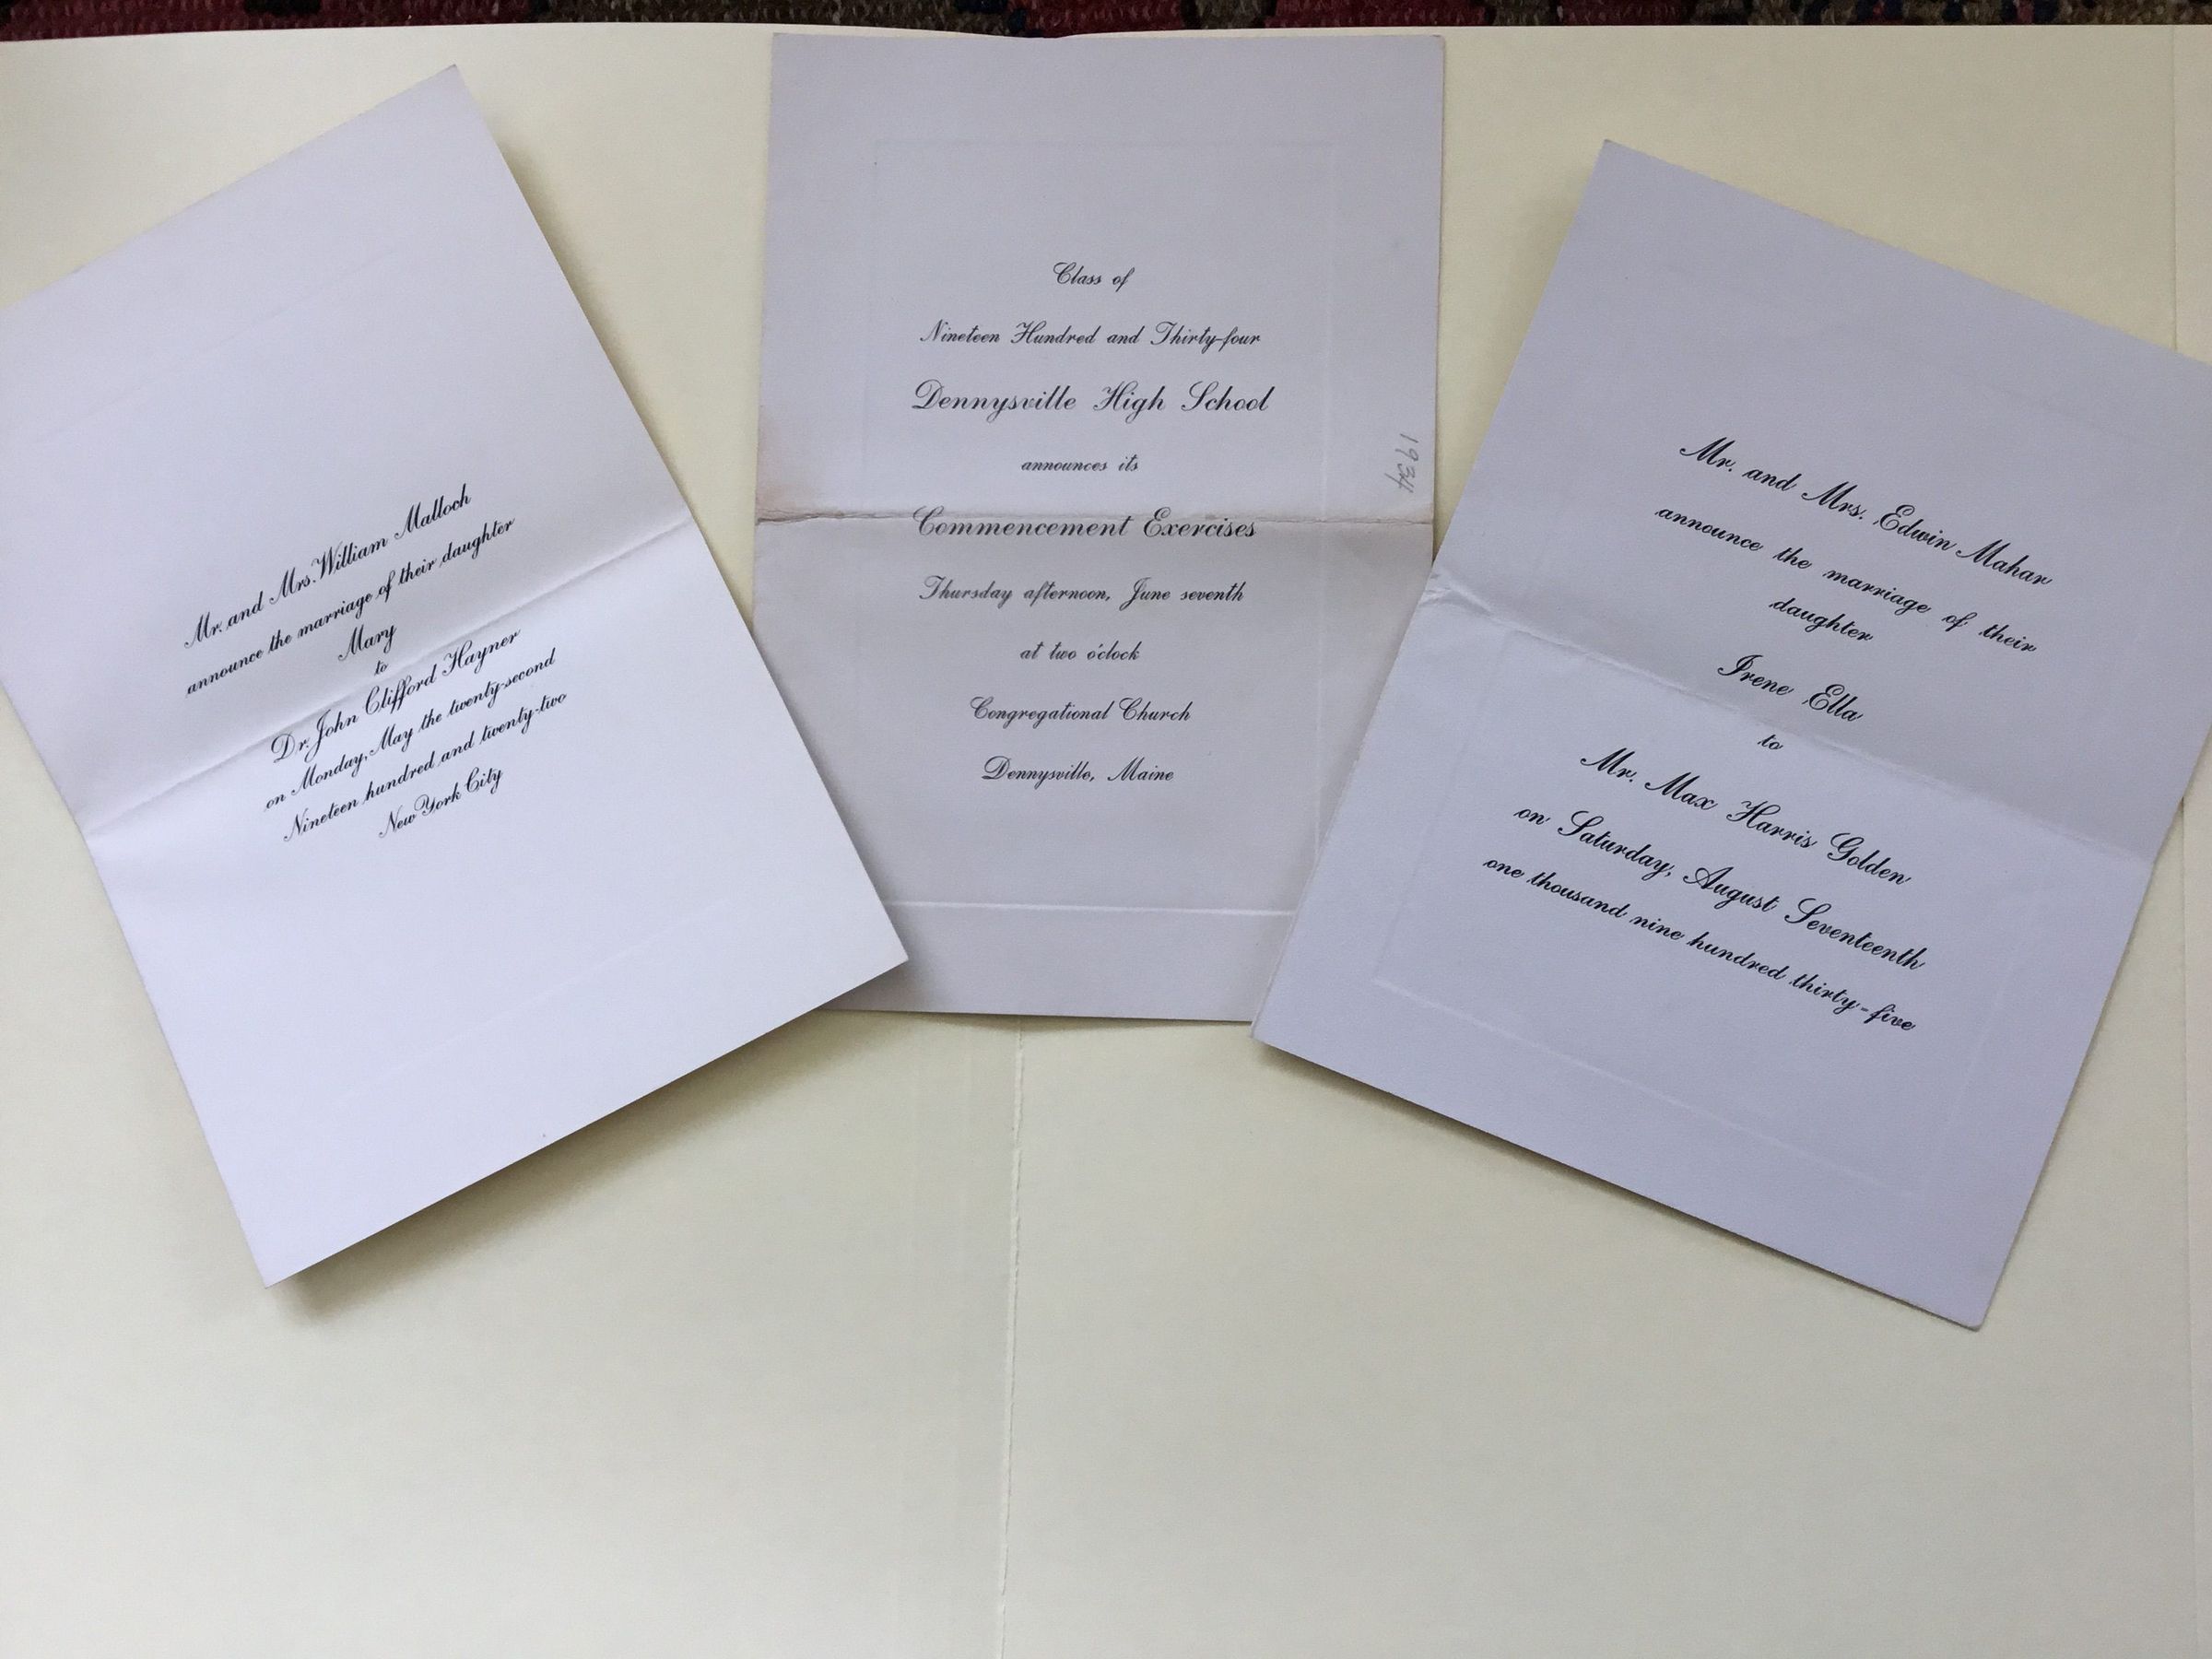 Mr. and Mrs. William Malloch
announce the marriage of their daughter
Mary
to
Dr. John Clifford Hayner
on Monday, May the twenty-second
Nineteen hundred and twenty-two
New York City
Class of
Nineteen Hundred and Thirty-four
Dennysville High School
announces its
Commencement Exercises
Thursday afternoon, June seventh
at two o'clock
Congregational Church
Dennysville, Maine
1934
Mr. and Mrs. Edwin Mahar
announce the marriage of their
daughter
Irene Ella
to
Mr. Max Harris Golden
on Saturday, August Seventeenth
one thousand nine hundred thirty-five